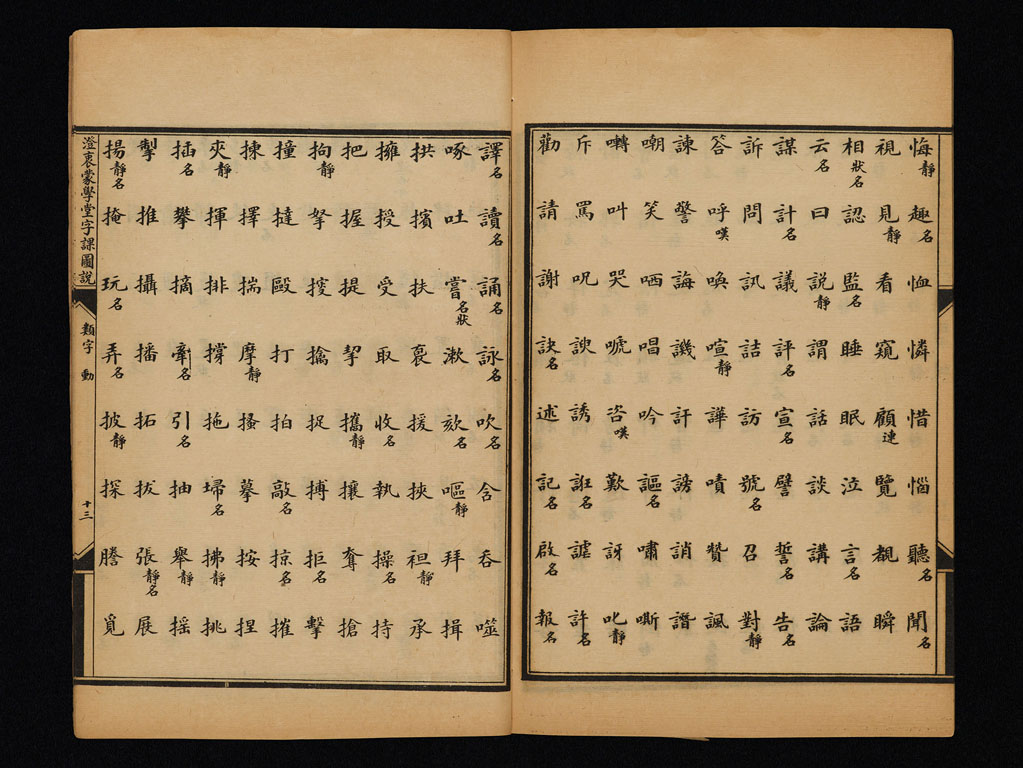 悔靜 趣名 恤 憐 惜 惱 聽名 聞名
視 見靜 看 窺 顧連 覽 覩 瞬
相狀名 認 監名 睡 眠 泣 言名 語
云名 曰 説靜 謂 話 談 講 論
謀 計名 議 評名 宣名 譬 誓名 告名
訴 問 訊 詰 訪 號名 召 對靜
答 呼嘆 喚 喧靜 譁 嘖 贊 諷
諫 警 誨 譏 訐 謗 誚 譖
嘲 笑 哂 唱 吟 謳名 嘯 嘶
囀 叫 哭 唬 咨嘆 歎 訝 叱靜
斥 罵 呪 諛 誘 誑名 謔 許名
勸 請 謝 訣名 述 記名 啟名 報名
譯名 讀名 誦名 詠名 吹名 含 吞 噬
啄 吐 嘗名狀 漱 欬名 嘔靜 拜 揖
拱 擯 扶 裒 援 挾 袒靜 承
擁 授 受 取 收名 執 操名 持
把 握 提 挈 攜靜 攘 奪 搶
拘靜 拏 擒 捉 搏 拒名 擊
撞 撻 毆 打 拍 敲名 掠名 摧
揀 擇 揣 摩靜 搔 摹 按 捏
夾靜 揮 排 撐 拖 埽名 拂靜 挑
插名 攀 摘 牽名 引名 抽 舉靜 搖
掣 推 攝 播 拓 拔 張靜名 展
揚靜名 掩 玩名 弄名 披靜 探 謄 覓
澄衷蒙學堂字課圖說
類字 動
十三